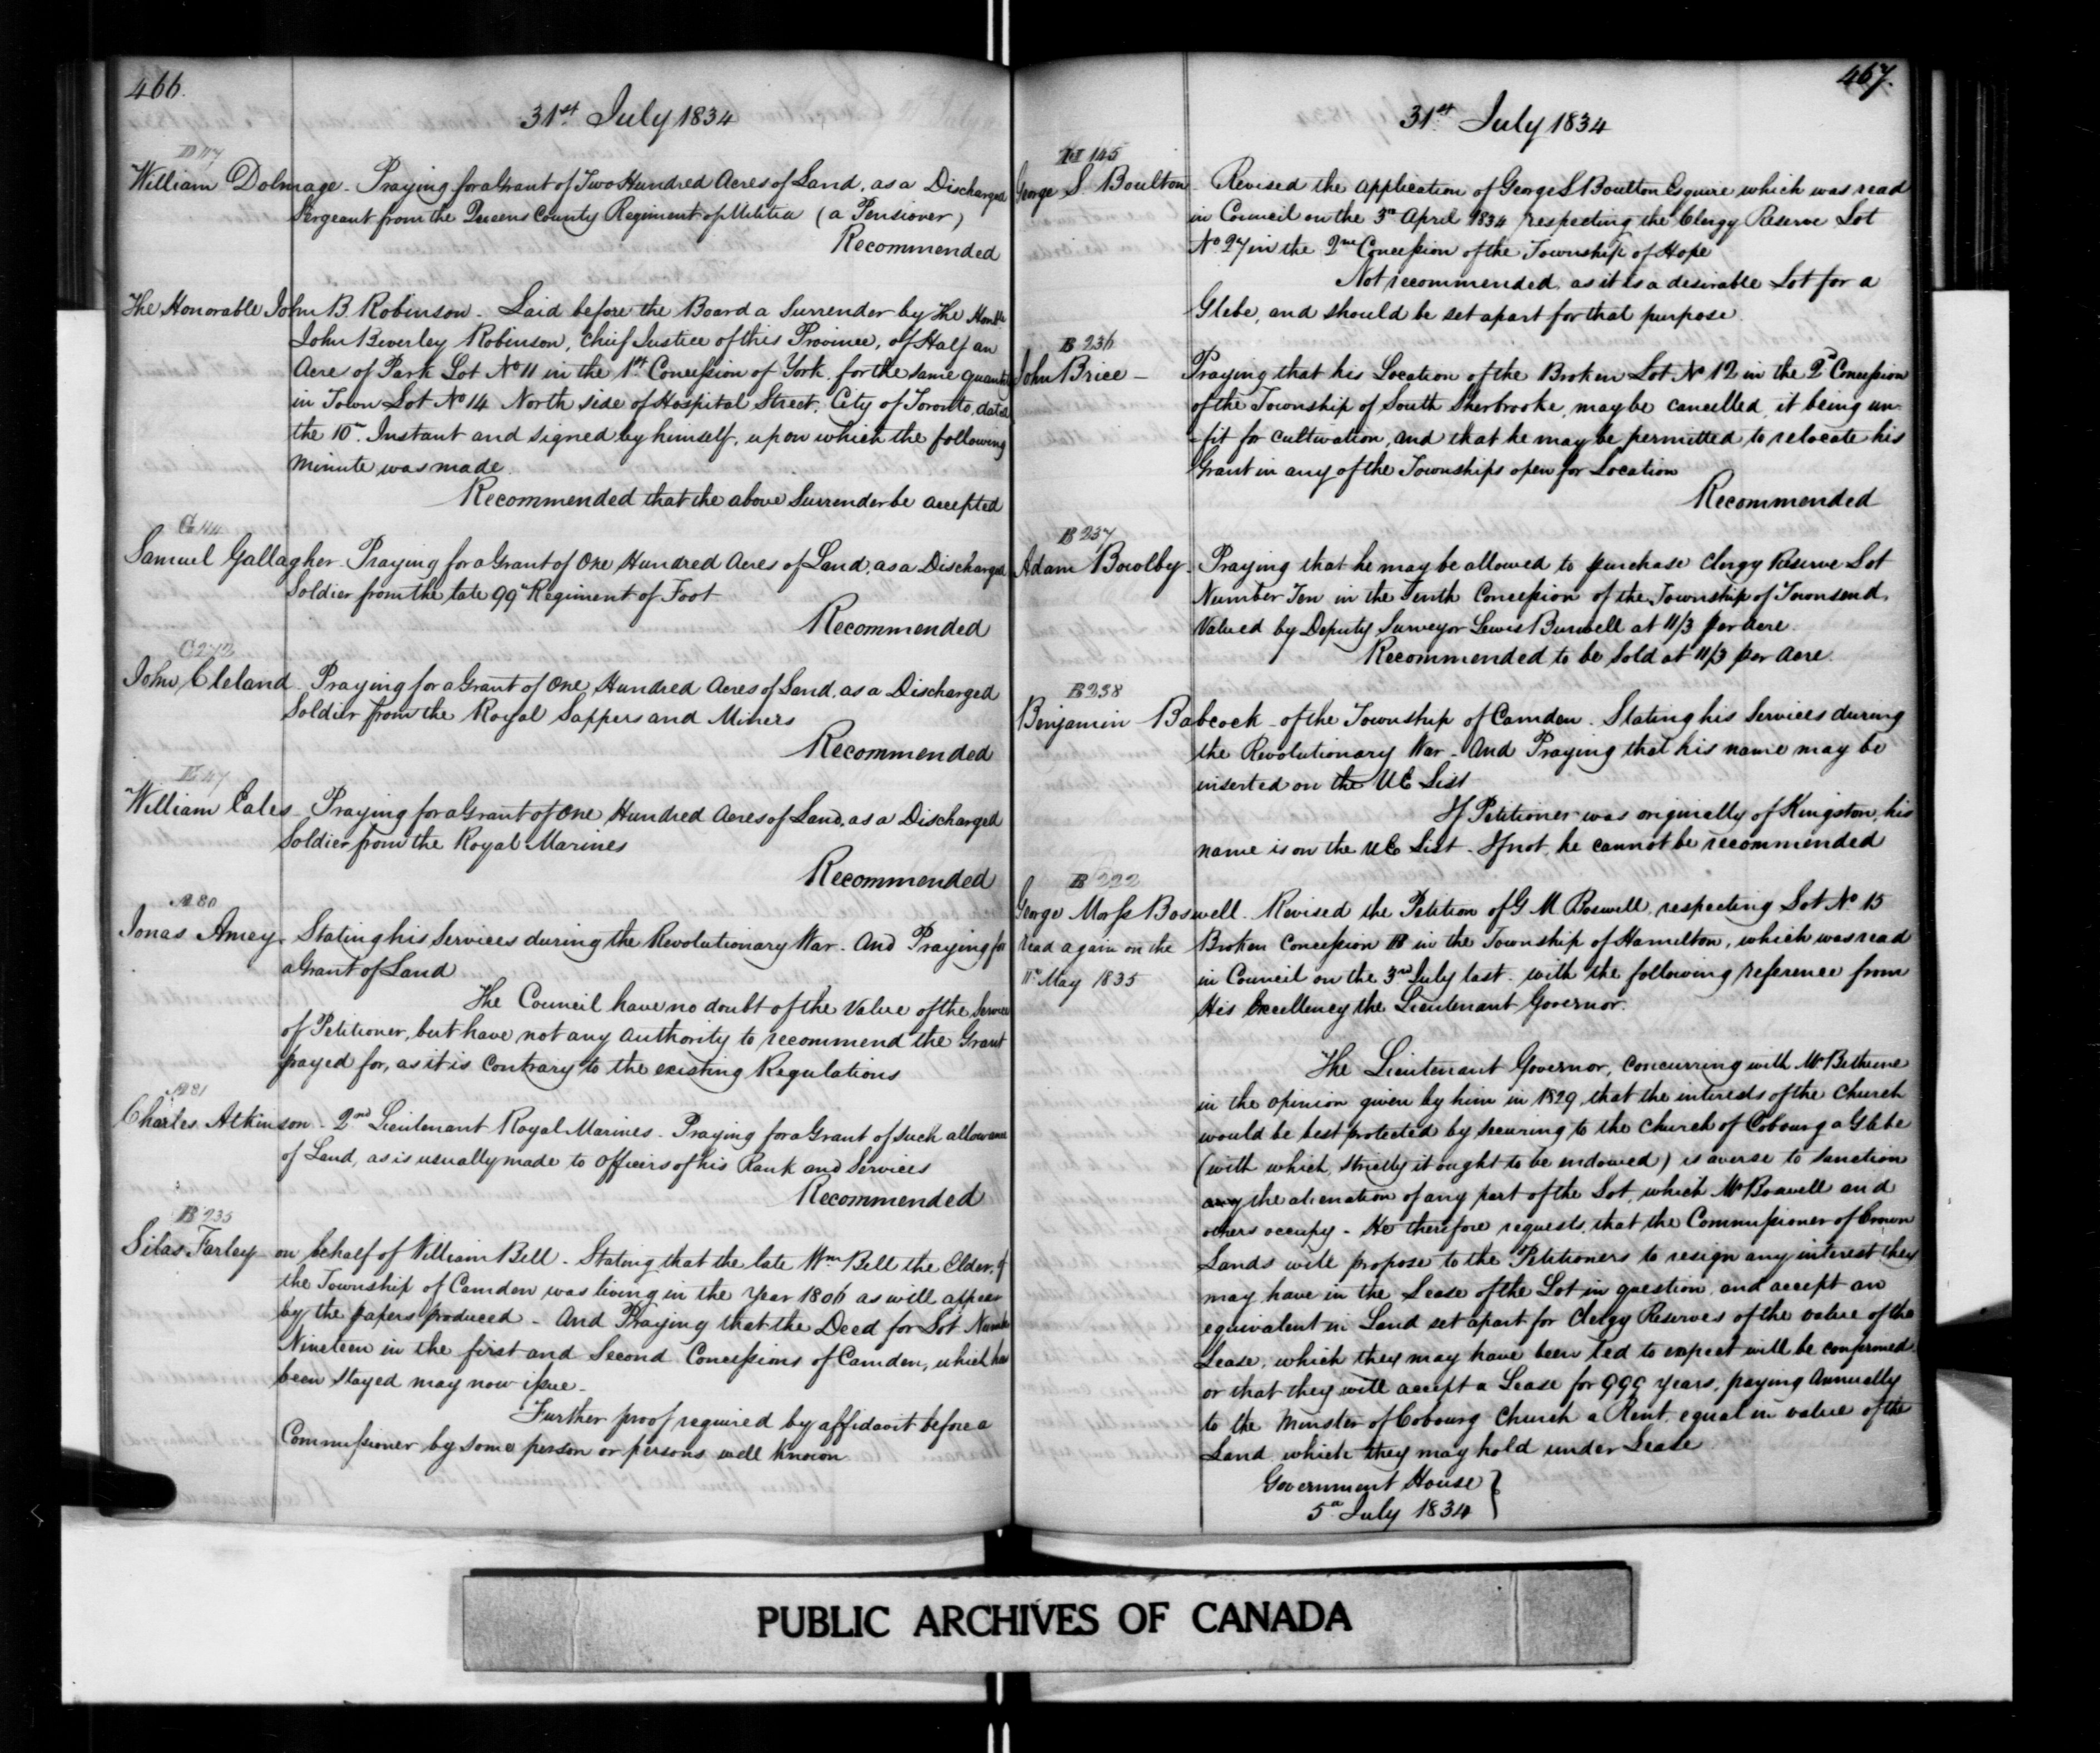 466.
31st July 1834
D 117
William Dolmage - Praying for a Grant of Two Hundred Acres of Land, as a Discharged
Sergeant from the Queens County Regiment of Militia (a Pensioner)
Recommended
The Honorable John B. Robinson - Laid before the Board a Surrender by The Honble
John Beverley Robinson, Chief Justice of this Province, of Half an
Acre of Park Lot No 11 in the 1st Concession of York, for the same quantity
in Town Lot No 14 North side of Hospital Street, City of Toronto, dated
the 10th Instant and signed by himself, upon which the following
Minute was made.
Recommended that the above Surrender be accepted
G 44
Samuel Gallagher - Praying for a Grant of One Hundred Acres of Land, as a Discharged
Soldier from the late 99th Regiment of Foot
Recommended
C 272
John Cleland - Praying for a Grant of One Hundred Acres of Land, as a Discharged
Soldier from the Royal Sappers and Miners
Recommended
E 47
William Eales Praying for a Grant of One Hundred Acres of Land, as a Discharged
Soldier from the Royal Marines
Recommended
A 80
Jonas Amey - Stating his Services during the Revolutionary War - And Praying for
a Grant of Land
The Council have no doubt of the Value of the Services
of Petitioner, but have not any Authority to recommend the Grant
prayed for, as it is contrary to the existing Regulations
A 81
Charles Atkinson - 2nd Lieutenant Royal Marines - Praying for a Grant of such allowance
of Land, as is usually made to Officers of his Rank and Services
Recommended
B 235
Silas Farley - on behalf of William Bell - Stating that the late Wm Bell the Elder, of
the Township of Camden was living in the Year 1806 as will appear
by the papers produced - And Praying that the Deed for Lot Number
Nineteen in the first and Second Concessions of Camden, which has
been stayed may now issue -
Further proof required by affidavit before a
Commissioner by some person or persons well known
467.
31st July 1834
145
George S. Boulton - Revised the Application of George S Boulton Esquire which was read
in Council on the 3rd April 1834 respecting the Clergy Reserve Lot
No 27 in the 2nd Concession of the Township of Hope
Not recommended, as it is a desirable Lot for a
Glebe, and should be set apart for that purpose
B 236
John Brice - Praying that his Location of the Broken Lot No 12 in the 2d Concession
of the Township of South Sherbrooke, may be cancelled, it being un-
-fit for cultivation, and that he may be permitted to relocate his
Grant in any of the Townships open for Location
Recommended
B 237
Adam Bowlby - Praying that he may be allowed to purchase Clergy Reserve Lot
Number Ten in the Tenth Concession of the Township of Townsend,
Valued by Deputy Surveyor Lewis Burwell at 11/3 per acre.
Recommended to be sold at 11/3 per Acre.
B 238
Benjamin Babcock - of the Township of Camden. Stating his Services during
the Revolutionary War - And Praying that his name may be
inserted on the UE List
If Petitioner was originally of Kingston, his
name is on the UE List - If not, he cannot be recommended
B 222
George Morss Boswell - Revised the Petition of G M Boswell, respecting Lot No 15
Read again on the
11th May 1835
Broken Concession B in the Township of Hamilton, which was read
in Council on the 3rd July last - with the following reference from
His Excellency the Lieutenant Governor.
The Lieutenant Governor, concurring with Mr Bethune
in the opinion given by him in 1829, that the interests of the Church
would be best protected by securing to the Church of Cobourg a Glebe
(with which, strictly it ought to be endowed) is averse to sanction
any the alienation of any part of the Lot, which Mr Boswell and
others occupy - He therefore requests, that the Commissioner of Crown
Lands will propose to the Petitioners to resign any interest they
may have in the Lease of the Lot in question, and accept an
equivalent in Land set apart for Clergy Reserves of the value of the
Lease, which they may have been led to expect will be confirmed
or that they will accept a Lease for 999 Years, paying Annually
to the Minster of Cobourg Church a Rent, equal in value of the
Land which they may hold under Lease
Government House
5th July 1834
PUBLIC ARCHIVES OF CANADA